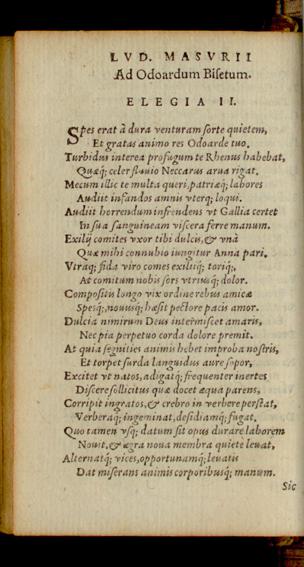 LVD. MASVRII
Ad Odoardum Bisetum.
ELEGIA II.
Spes erat à dura venturam sorte quietem,
Et gratas animo res Odoarde tuo.
Turbidus interea profugum te Rhenus habebat,
Quæq; celer flauio Neccarus arua rigat.
Mecum illic te multa queri, patriæq; labores
Audiit infandos amnis vterq; loqui.
Audiit horrendum infrendens vt Gallia certet
In sua sanguineam viscera ferre manum.
Exilij comites vxor tibi dulcis, & vnà
Quæ mihi connubio iungitur Anna pari.
Vtraq; fida viro comes exiliiq;, toriq;,
At comitum nobis sors vtriusq; dolor.
Compositis longo vix ordine rebus amicæ
Spesq;, nouusq; hæsit pectore pacis amor.
Dulcia nimirum Deus intermiscet amaris,
Nec pia perpetuo corda dolore premit.
At quia segnities animis hebet improba nostris,
Et torpet surda languidus aure sopor,
Excitet vt natos, adigatq; frequenter inertes
Discere sollicitus quæ docet æqua parens,
Corripit ingratos, & crebro in verbere perstat,
Verberaq; ingeminat, desidiamq; fugat,
Quo tamen vsq; datum sit opus durare laborem
Nouit, & ægra noua membra quiete leuat,
Alternatq; vices, opportunamq; leuatis
Dat miserans animis corporibusq; manum.
Sic